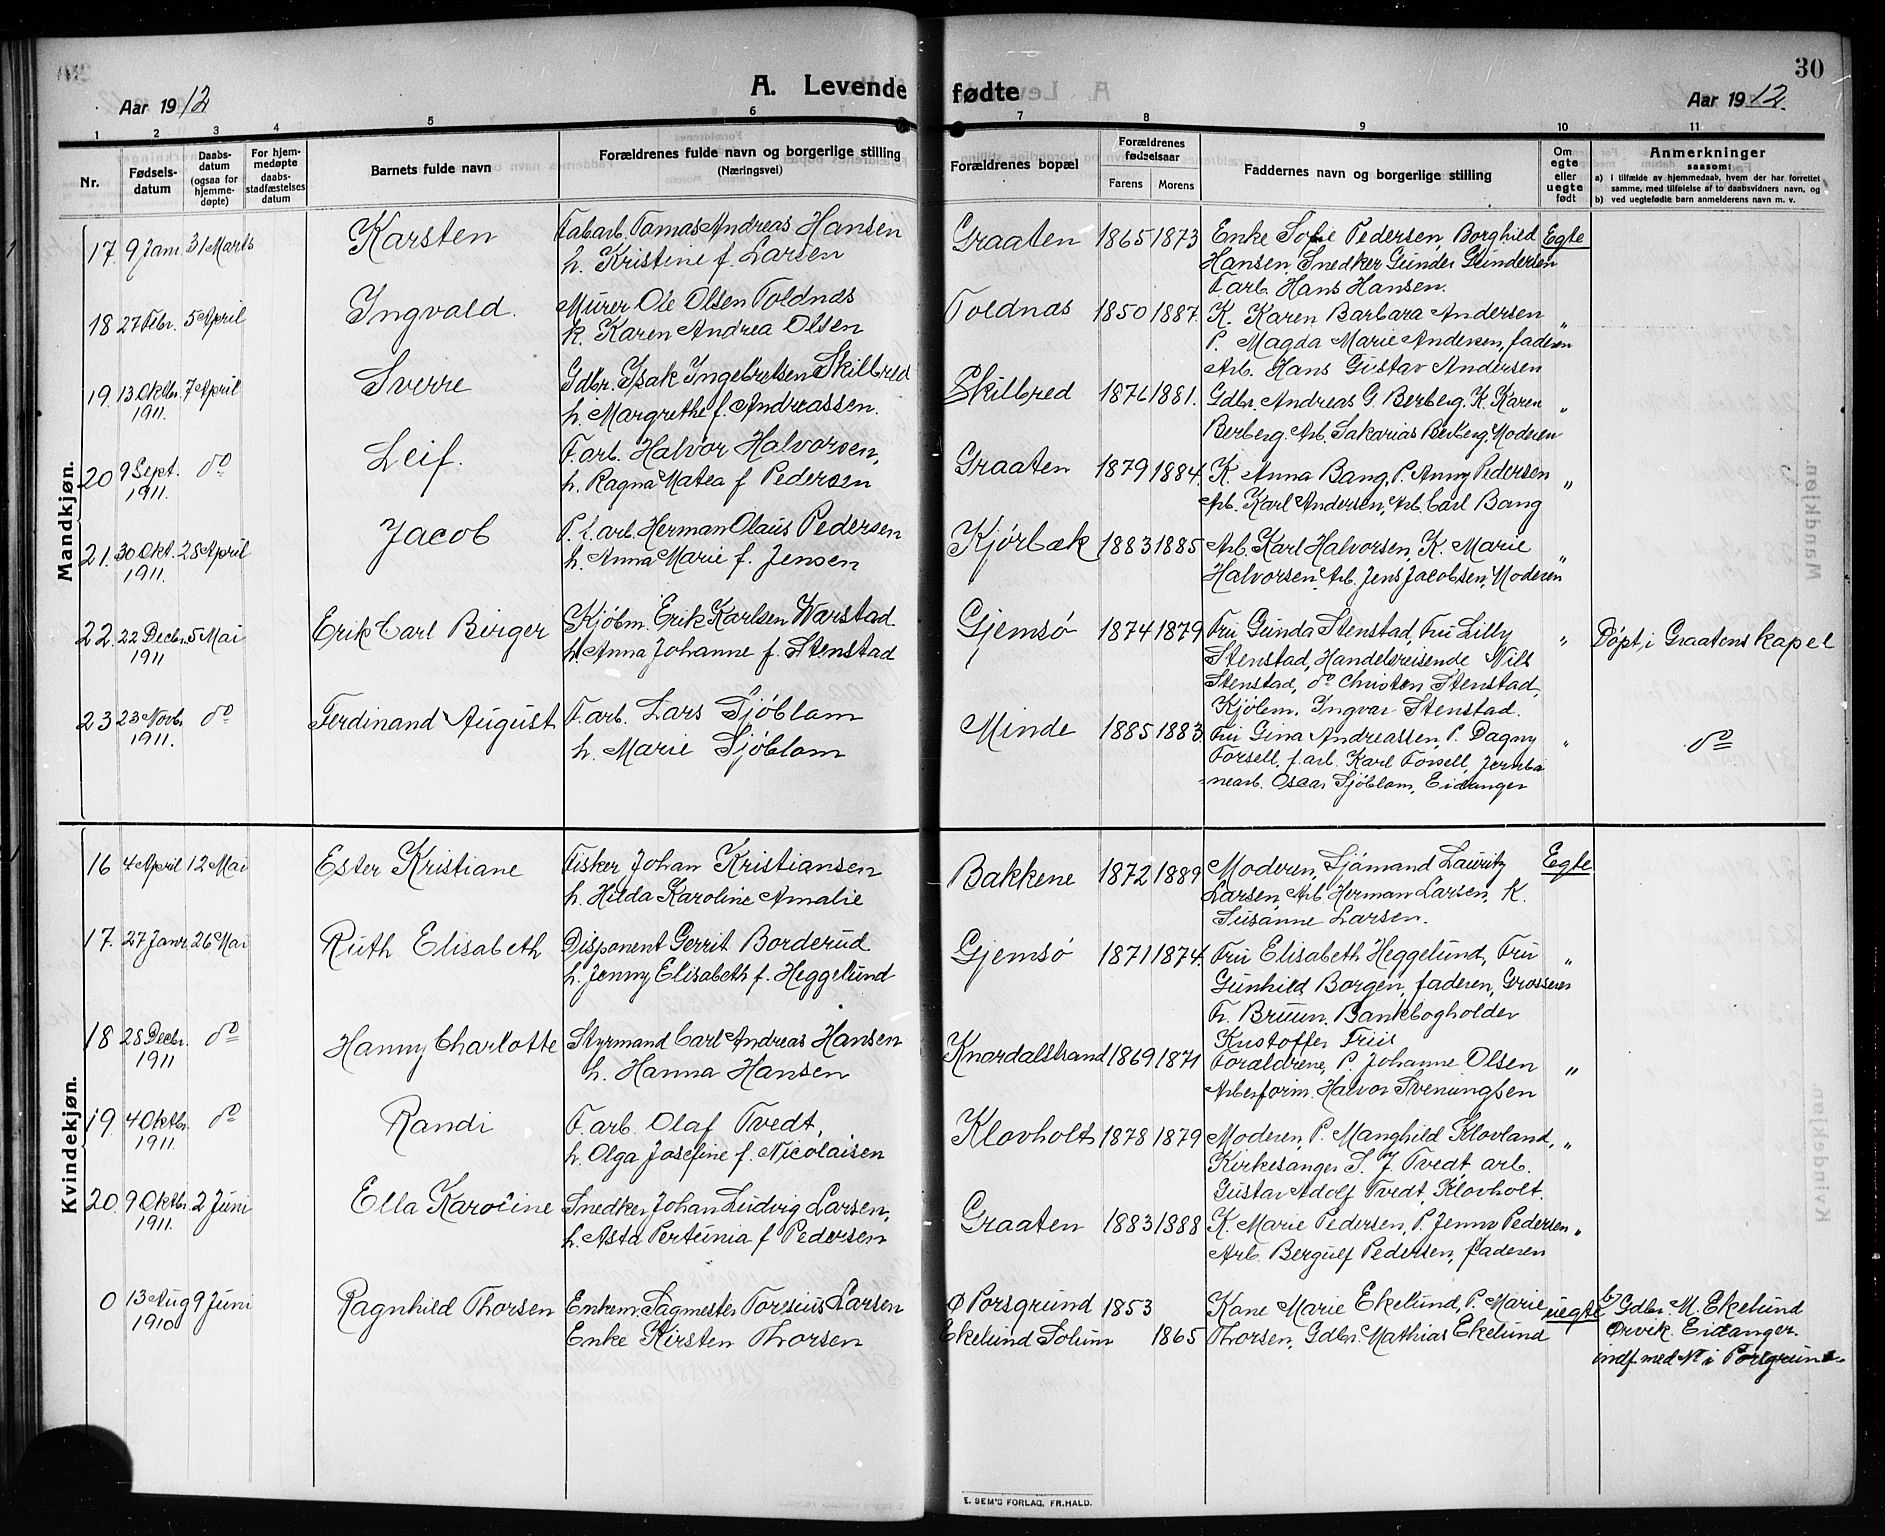 30
A. Levende fødte
Aar 1912
Aar 1912.
1 2 3 4 5 6 7 8 9 10 11
Nr.
Fødsels-
datum
Daabs-
datum
(ogsaa for
hjemme-
døpte)
For hjem-
medøpte
daabs-
stadfæstelses
datum
Barnets fulde navn
Forældrenes fulde navn og borgerlige stilling
(Næringsvei)
Forældrenes bopæl
Forældrenes
fødselsaar
Farens Morens
Faddernes navn og borgerlige stilling
Om
egte
eller
uegte
født
Anmerkninger
saasom:
a) i tilfælde av hjemmedaab, hvem der har forrettet
samme, med tilføielse af to daabsvidners navn, og
b) ved uegtefødte barn anmelderens navn m. v.
Mandkjøn.
17. 9 Jan. 31 Marts Karsten
Fabarb. Tomas Andreas Hansen
h. Kristine f. Larsen
Graaten 1865 1873
Enke Sofie Pedersen, Borghild
Hansen, Snedker Gunder Gundersen
Farb. Hans Hansen.
Egte
18 27 Febr. 5 April Ingvald.
Murer Ole Olsen Toldnæs
k. Karen Andrea Olsen
Toldnæs 1850 1887.
K. Karen Barbara Andersen
P. Magda Marie Andersen, faderen
Arb. Hans Gustav Andersen
"
19. 13 Oktbr. 7 April Sverre
1911.
Gdbr. Isak Ingebretsen Skilbred
h. Margrethe f. Andreassen.
Skilbred 1876 1881.
Gdbr. Andreas G. Berberg. K. Karen
Berberg. Arb. Sakarias Berberg, Moderen
"
20 9 Sept. do Leif.
1911.
F.arb. Halvor Halvorsen,
h. Ragna Matea f Pedersen
Graaten 1879 1884.
K. Anna Bang, P. Anny Pedersen
Arb. Karl Andersen, Arb. Carl Bang
"
21. 30 Okt. 28 April Jacob
1911.
P. t. arb. Herman Olaus Pedersen
h. Anna Marie f. Jensen
Kjørbæk 1883 1885
Arb. Karl Halvorsen, K. Marie
Halvorsen, Arb. Jens Jacobsen, Moderen
"
22. 22 Decbr. 5 Mai Erik Carl Birger
1911
Kjøbm. Erik Karlsen Warstad.
h. Anna Johanne f. Stenstad
Gjemsø 1874 1879
Fru Gunda Stenstad, Fru Lilly
Stenstad, Handelsreisende Nils
Stenstad, do Christen Stenstad,
Kjøbm. Ingvar Stenstad.
" Døpt i Graatens kapel
23 23 Novbr. do Ferdinand August
1911.
F.arb. Lars Sjöblom
h. Marie Sjöblom
Minde 1885 1883
Fru Gina Andreassen, P. Dagny
Forsell, f.arb. Karl Forsell, Jernba
nearb. Oscar Sjöblom, Eidanger
" do
Kvindekjøn.
16 4 April 12 Mai Ester Kristiane
Fisker Johan Kristiansen
h. Hilda Karoline Amalie
Bakkene 1872 1889
Moderen, Sjømand Lauritz
Larsen, Arb Herman Larsen, K.
Susanne Larsen.
Egte
17. 27 Janr. 26 Mai Ruth Elisabeth
Disponent Gerrit Borderud
h. Jenny Elisabeth f. Heggelund
Gjemsø 1871 1874.
Fru Elisabeth Heggelund, Fru
Gunhild Borgen, faderen, Grosserer
Th. Bruun. Bankbogholder
Kristoffer Friis
"
18 28 Decbr. do Hanny Charlotte
1911
Styrmand Carl Andreas Hansen
h. Hanna Hansen
Knardalstrand 1869 1871
Forældrene, P. Johanne Olsen
Arbeform. Halvor Svenungsen
"
19. 4 Oktbr. do Randi
1911.
F. arb. Olaf Tvedt,
h. Olga Josefine f. Nicolaisen
Klovholt 1878 1879
Moderen, P. Manghild Klovland,
Kirkesanger S. J. Tvedt arb.
Gustav Adolf Tvedt, Klovholt.
"
20. 9 Oktbr. 2 Juni Ella Karoline
1911.
Snedker Johan Ludvig Larsen,
h. Asta Pertunia f Pedersen
Graaten 1883 1888
K. Marie Pedersen, P. Jenny Pedersen
Arb. Bergulf Pedersen, faderen
"
0 13 Aug 9 Juni Ragnhild Thorsen
1910
Enkem. Sagmester Torsius Larsen
Enke Kirsten Thorsen
Ø Porsgrund 1853
Ekelund Solum 1865
Kone Marie Ekelund, P. Marie
Thorsen, Gdbr. Mathias Ekelund
uegte
b) Gdbr. M. Ekelund
Ørvik. Eidanger.
indf. med Nr i Porsgrund
E. SEM'S FORLAG, FR.HALD.